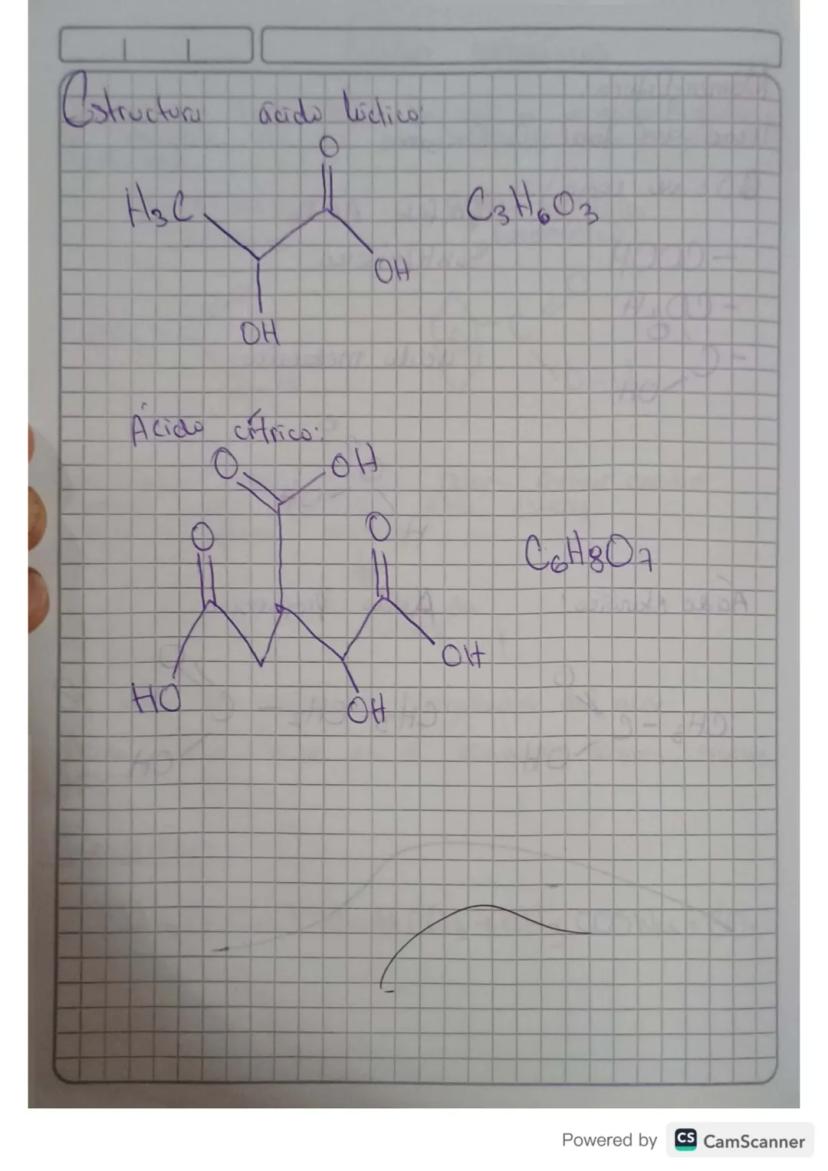 Estructura ácido láctico:
O
H₃C
C₃H₆O₃
OH
OH
Ácido cítrico:
O OH
O O
C₆H₈O₇
OH
HO
OH
Powered by CS CamScanner